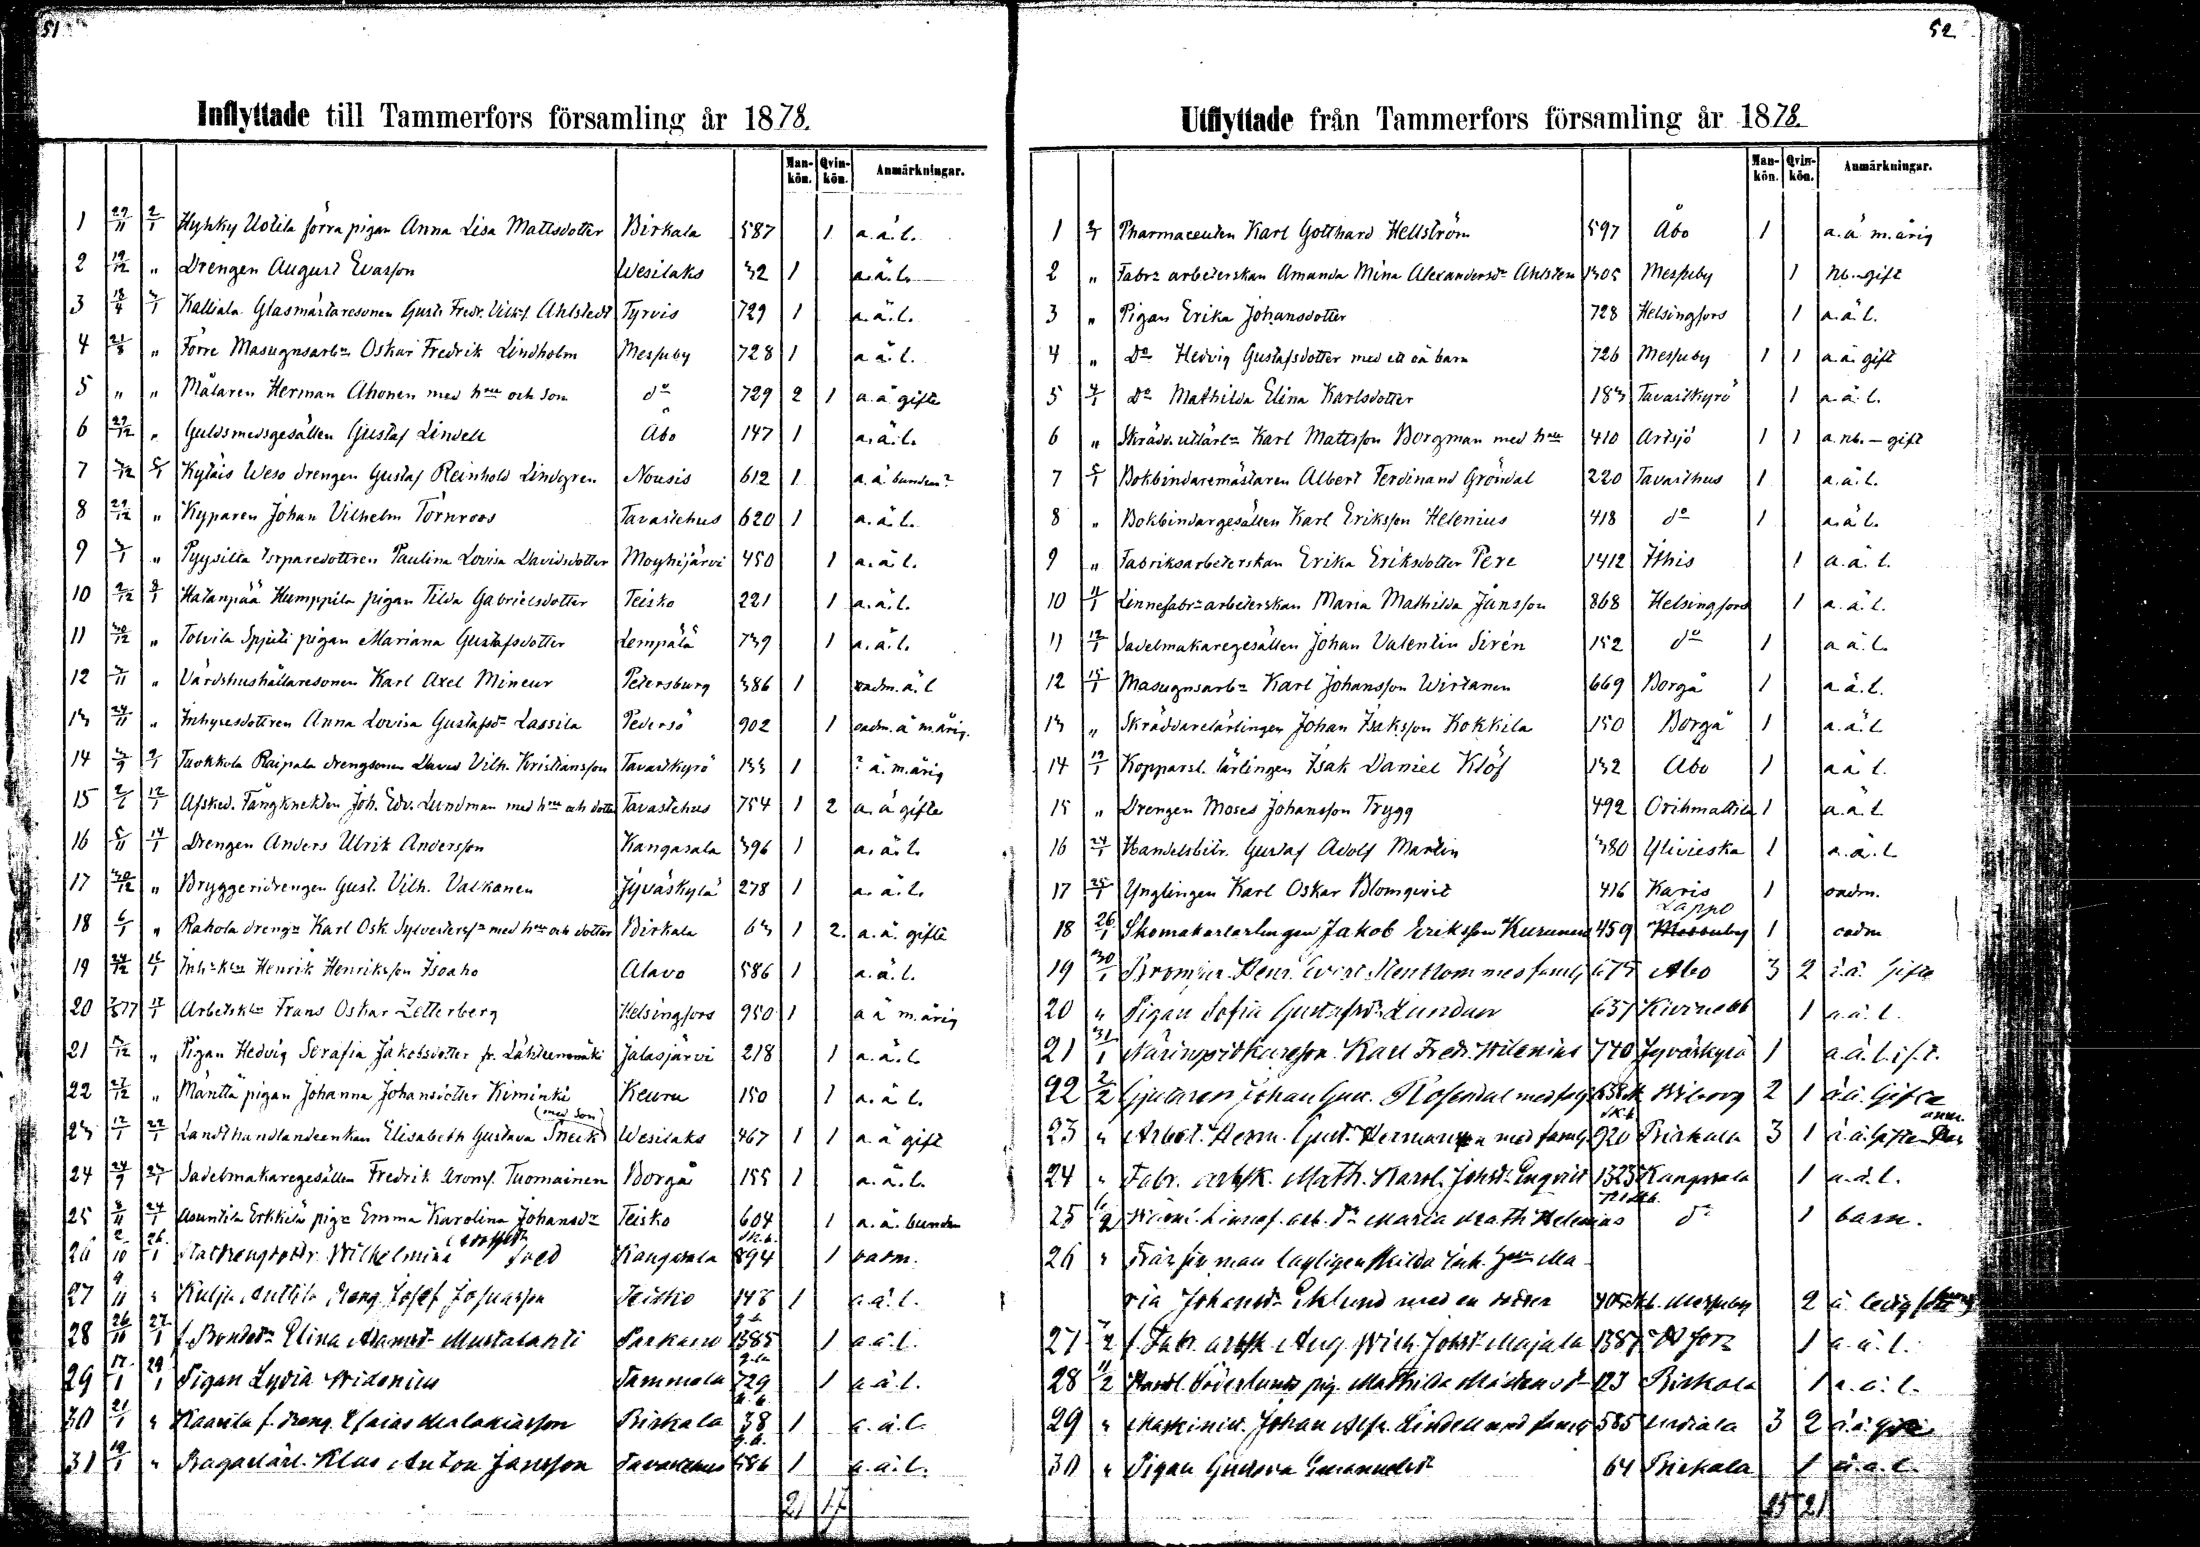 51
Inflyttade till Tammerfors församling år 1878.
Man-kön. Qvin-kön. Anmärkningar.
1 29/11 2/1 Hyhky Uotila förra pigan Anna Lisa Mattsdotter Birkala 587 1 a.ä.l.
2 19/12 " Drengen August Evasson Wesilaks 32 1 a.ä.l.
3 18/4 3/1 Kalliala Glasmästaresonen Gust. Fredr. Vilh. Ahlstedt Tyrvis 729 1 a.ä.l.
4 21/8 " Förre Masugnsarb. Oskar Fredrik Lindholm Messuby 728 1 a.ä.l.
5 " " Målaren Herman Ahonen med hru och son do 729 2 1 a.ä gifte
6 27/12 " Guldsmedsgesällen Gustaf Lindell Åbo 147 1 a.ä.l.
7 5/1 Kyläis Weso drengen Gustaf Reinhold Lindgren Nousis 612 1 a.ä bunden?
8 29/12 " Kyparen Johan Vilhelm Törnroos Tavastehus 620 1 a.ä.l.
9 3/1 " Pyysilla torparedottren Paulina Lovisa Davidsdotter Moyhijärvi 450 1 a.ä l.
10 8/1 Hatanpää Humppila pigan Tilda Gabrielsdotter Teisko 221 1 a.ä.l.
11 30/12 " Tolvila Spjuti pigan Mariana Gustafsdotter Lempälä 739 1 a.ä.l.
12 " Värdshushållaresonen Karl Axel Mineur Petersburg 386 1 oadm.ä.l
13 24/11 " Inhysesdottren Anna Lovisa Gustafsdr Lassila Pedersö 902 1 oadm.ä m.årig.
14 Raipala drengsonen David Vilh. Kristiansson Tavastkyrö 133 1 ? ä.m.årig
15 12/1 Afsked. Fångknekten Joh. Edv. Lundman med hru och dotter Tavastehus 754 1 2 a.ä gifte
16 5/11 14/1 Drengen Anders Ulrik Andersson Kangasala 396 1 a.ä.l.
17 30/12 " Bryggeridrengen Gust. Vilh. Valkanen Jyväskylä 278 1 a.ä.l.
18 6/1 " Rahola drengn Karl Osk. Sylvestersn med hru och dotter Birkala 63 1 2. a.ä. gifte
19 24/12 16/1 Henrik Henriksson Isoaho Alavo 586 1 a.ä.l.
20 17/1 Frans Oskar Zetterberg Helsingfors 950 1 a ä m.årig
21 " Pigan Hedvig Serafia Jakobsdotter Jalasjärvi 218 1 a.ä.l.
22 27/12 " Mänttä pigan Johanna Johansdotter Kiminki Keuru 150 1 a.ä l.
(med son)
23 12/1 22/1 Landthandlandeenkan Elisabeth Gustava Sneck Wesilaks 467 1 1 a.ä gift
24 24/9 23/1 Sadelmakaregesällen Fredrik Aronss. Tuomainen Borgå 155 1 a.ä.l.
25 24/1 Asuntila Erkkilä pign Emma Karolina Johansdr Teisko 604 1 a.ä. bunden
26 2/10 26/1 Wilhelmina Kangasala 894 1 oadm.
27 9/11 " Kulju Anttila dreng. Josef Josuasson Teisko 1 a.ä.l.
28 26/10 27/1 f. Bondedr Elina Adamsdr Mustalahti Parkano 1385 1 a.ä.l.
29 17/1 29/1 Pigan Lydia Widenius Tammela 729 1 a.ä.l.
30 21/1 " Kaarila f. dreng. Esaias Malakiasson Birkala 38 1 a.ä.l.
31 19/1 " Bagarelärl. Klas Anton Jansson Tavastehus 586 1 a.ä.l.
21 17
52
Utflyttade från Tammerfors församling år 1878.
Man-kön. Qvin-kön. Anmärkningar.
1 Pharmaceuten Karl Gotthard Hellström 597 Åbo 1 a.ä m.årig
2 " Fabrs arbeterskan Amanda Mina Alexandersdr Ahlsten 1305 Messuby 1 nb. gift
3 " Pigan Erika Johansdotter 728 Helsingfors 1 a.ä l.
4 " Do Hedvig Gustafsdotter med ett oä barn 726 Messuby 1 1 a.ä. gift
5 4/1 Do Mathilda Elina Karlsdotter 183 Tavastkyrö 1 a.ä.l.
6 " Karl Mattsson Borgman med hru 410 Artsjö 1 1 a.nb. – gift
7 5/1 Bokbindaremästaren Albert Ferdinand Gröndal 220 Tavasthus 1 a.ä.l.
8 " Bokbindargesällen Karl Eriksson Helenius 418 do 1 a.ä l.
9 " Fabriksarbeterskan Erika Eriksdotter Pere 1412 Ithis 1 a.ä.l.
10 Linnefabrs arbeterskan Maria Mathilda Jansson 868 Helsingfors 1 a.ä.l.
11 12/1 Sadelmakaregesällen Johan Valentin Sirén 152 do 1 a.ä.l.
12 15/1 Masugnsarbn Karl Johansson Wirtanen 669 Borgå 1 a.ä.l.
13 " Skräddarelärlingen Johan Isaksson Kokkila 150 Borgå 1 a.ä.l
14 Kopparsl. lärlingen Isak Daniel Klöf 132 Åbo 1 a.ä l.
15 " Drengen Moses Johansson Trygg 492 Orihmattila 1 a.ä.l.
16 24/1 Handelsbitr. Gustaf Adolf Martin 380 Ylivieska 1 a.ä.l
17 25/1 Ynglingen Karl Oskar Blomqvist 416 Karis 1 oadm.
Lappo
18 26/1 Skomakarlärlingen Jakob Eriksson Kurunen 459 Messuby 1 oadm
19 30/1 med familj 675 Åbo 3 2 ä.ä. gifte
20 " Pigan Sofia Gustafsdr 657 Kivinebb 1 a.ä.l.
21 31/1 Karl Fredr. Wilenius 740 Jyväskylä 1 a.ä.l.
22 2/2 Gjutaren Johan Gust. Rosendal med 658 Wiborg 2 1 a.ä. Gifte
23 " Arbet. Herm. Gust. Hermansson med familj 920 Birkala 3 1 a.ä. Gifte
24 " Fabr. arbsk. Math. Karol. Johsdr Enqvist 1323 Kangasala 1 a.ä.l.
25 6/2 arb. dr Maria Math. Helenius do 1 barn.
26 " Från sin man Hilda Ma-
ria Johansdr Eklund med en dotter 405 Messuby 2
27 7/2 f. Fabr. arbsk. Aug. Wilh. Johsdr Majala 1387 1 a.ä.l.
28 11/2 Handl. Söderlunds pig. Mathilda 123 Birkala 1 a.ä.l.
29 " Maskinist. Johan Alfr. Lindell med familj 585 Urdiala 3 2 a.ä.
30 " Pigan Gustava Emanuelsdr 64 Birkala 1 a.ä.l.
25 21